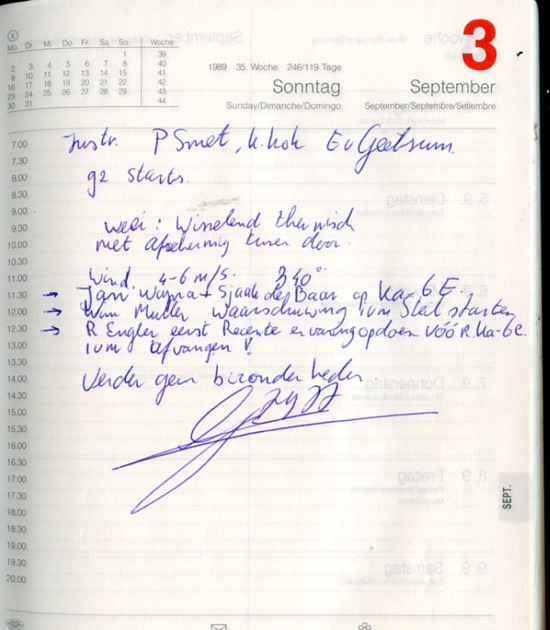 X
Mo Di Mi Do Fr Sa So Woche
1 39
2 3 4 5 6 7 8 40
9 10 11 12 13 14 15 41
16 17 18 19 20 21 22 42
23 24 25 26 27 28 29 43
30 31 44
1989 35. Woche 246/119 Tage
Sonntag
Sunday/Dimanche/Domingo
3
September
September/Septembre/Setiembre
7.00
7.30
8.00
8.30
9.00
9.30
10.00
10.30
11.00
11.30
12.00
12.30
13.00
13.30
14.00
14.30
15.00
15.30
16.00
16.30
17.00
17.30
18.00
18.30
19.00
19.30
20.00
Instr. P Smet, k. kok E v Geelsum.
92 starts.
weer: Wisselend thermisch
met afscherming tussen door.
Wind 4-6 m/s. 340°.
→ Jan + Sjaak de Baar op Ka-6E.
→ Wim Muller waarschuwing ivm Steil starten
→ R Engler eerst Recente ervaring opdoen vóór R. Ka-6e.
ivm afvangen !
Verder geen bizonderheden
SEPT.